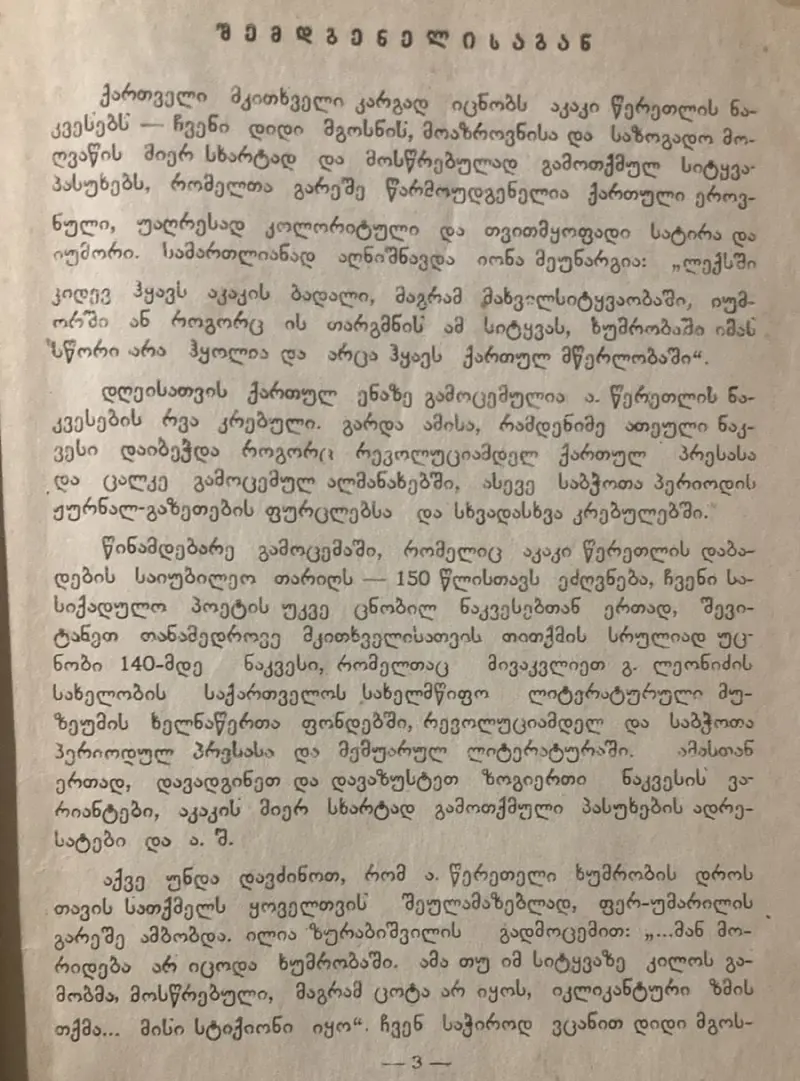 შემდგენელისაგან
ქართველი მკითხველი კარგად იცნობს აკაკი წერეთლის ნა-
კვესებს — ჩვენი დიდი მგოსნის, მოაზროვნისა და საზოგადო მო-
ღვაწის მიერ სხარტად და მოსწრებულად გამოთქმულ სიტყვა-
პასუხებს, რომელთა გარეშე წარმოუდგენელია ქართული ეროვ-
ნული, უაღრესად კოლორიტული და თვითმყოფადი სატირა და
იუმორი. სამართლიანად აღნიშნავდა იონა მეუნარგია: „ლექსში
კიდევ ჰყავს აკაკის ბადალი, მაგრამ მახვილსიტყვაობაში, იუმ-
ორში ან როგორც ის თარგმნის ამ სიტყვას, ხუმრობაში იმას
სწორი არა ჰყოლია და არცა ჰყავს ქართულ მწერლობაში“.
დღეისათვის ქართულ ენაზე გამოცემულია ა. წერეთლის ნა-
კვესების რვა კრებული. გარდა ამისა, რამდენიმე ათეული ნაკ-
ვესი დაიბეჭდა როგორც რევოლუციამდელ ქართულ პრესასა
და ცალკე გამოცემულ ალმანახებში, ასევე საბჭოთა პერიოდის
ჟურნალ-გაზეთების ფურცლებსა და სხვადასხვა კრებულებში.
წინამდებარე გამოცემაში, რომელიც აკაკი წერეთლის დაბა-
დების საიუბილეო თარიღს — 150 წლისთავს ეძღვნება, ჩვენი სა-
სიქადულო პოეტის უკვე ცნობილ ნაკვესებთან ერთად, შევი-
ტანეთ თანამედროვე მკითხველისათვის თითქმის სრულიად უც-
ნობი 140-მდე ნაკვესი, რომელთაც მივაკვლიეთ გ. ლეონიძის
სახელობის საქართველოს სახელმწიფო ლიტერატურული მუ-
ზეუმის ხელნაწერთა ფონდებში, რევოლუციამდელ და საბჭოთა
პერიოდულ პრესასა და მემუარულ ლიტერატურაში. ამასთან
ერთად, დავადგინეთ და დავაზუსტეთ ზოგიერთი ნაკვესის ვა-
რიანტები, აკაკის მიერ სხარტად გამოთქმული პასუხების ადრე-
სატები და ა. შ.
აქვე უნდა დავძინოთ, რომ ა. წერეთელი ხუმრობის დროს
თავის სათქმელს ყოველთვის შეულამაზებლად, ფერ-უმარილის
გარეშე ამბობდა. ილია ზურაბიშვილის გადმოცემით: „...მან მო-
რიდება არ იცოდა ხუმრობაში. ამა თუ იმ სიტყვაზე კილოს გა-
მობმა, მოსწრებული, მაგრამ ცოტა არ იყოს, იკლიკანტური ზმის
თქმა... მისი სტიქიონი იყო“. ჩვენ საჭიროდ ვცანით დიდი მგოს-
— 3 —